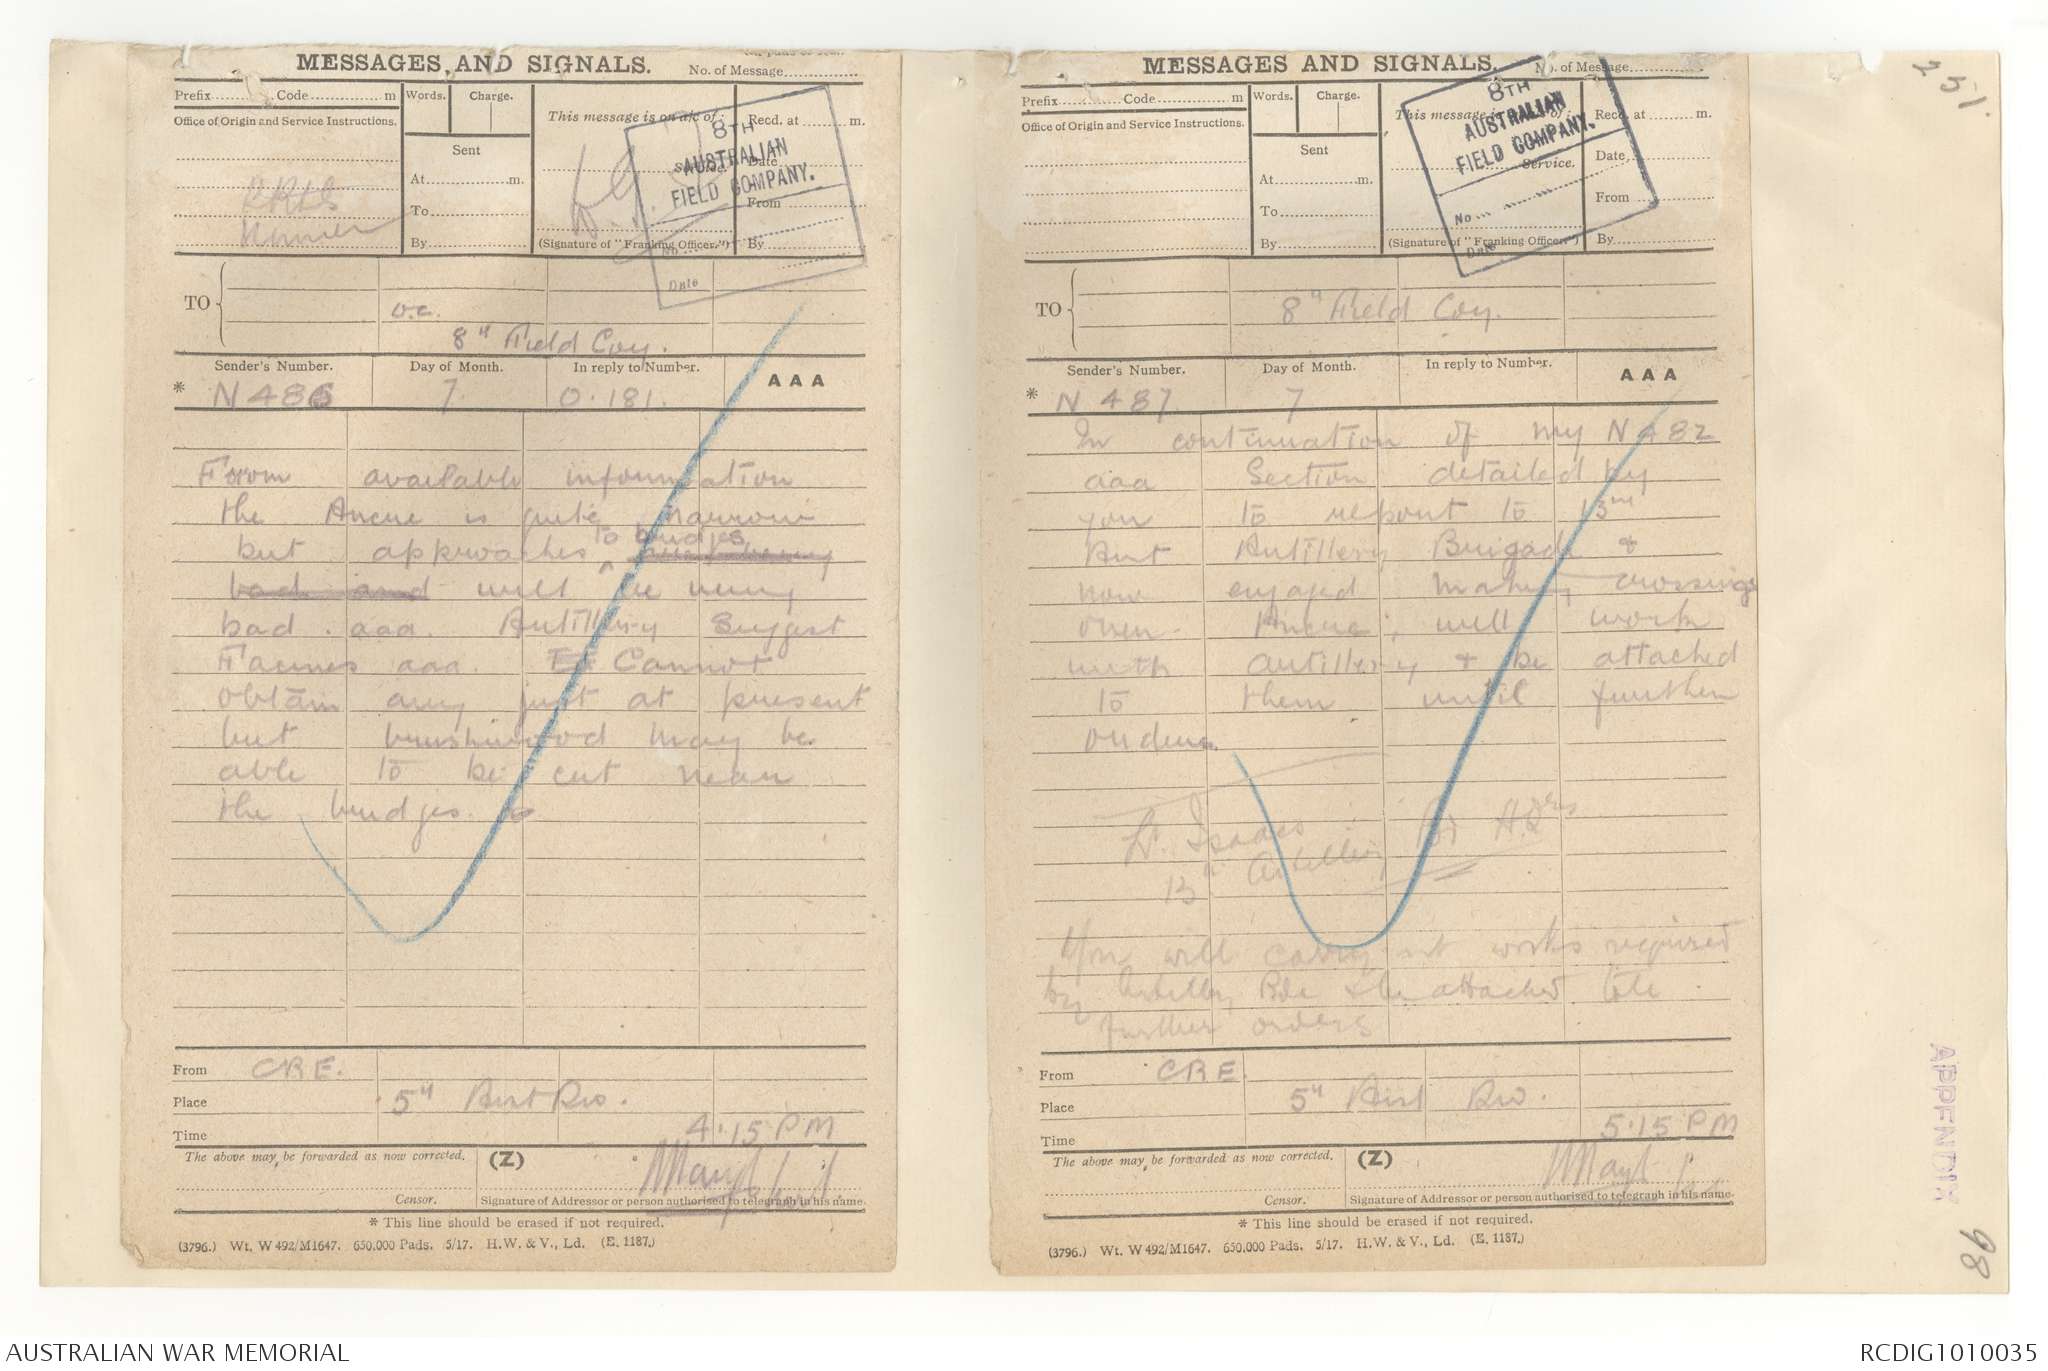 MESSAGES AND SIGNALS.
No. of Message
Prefix Code m
Words. Charge.
This message is on a/c of:
Recd. at m.
Office of Origin and Service Instructions.
Sent
Service.
Date
At m.
From
To
By
(Signature of "Franking Officer.")
By
8TH
AUSTRALIAN
FIELD COMPANY.
No
Date
TO
O.C.
8th Field Coy.
Sender's Number. Day of Month. In reply to Number. AAA
* N 486 7. O.181.
From available information
the Ancre is quite narrow
but approaches to bridges
bad and will be very
bad. aaa. Artillery suggest
Facines aaa. Cannot
obtain any just at present
but brushwood may be
able to be cut near
the bridges.
From CRE.
Place 5th Aust Div.
Time 4.15 PM
The above may be forwarded as now corrected. (Z)
Censor. Signature of Addressor or person authorised to telegraph in his name.
* This line should be erased if not required.
(3796.) Wt. W 492/M1647. 650,000 Pads. 5/17. H.W. & V., Ld. (E. 1187.)
MESSAGES AND SIGNALS.
No. of Message
Prefix Code m
Words. Charge.
This message is on a/c of:
Recd. at m.
Office of Origin and Service Instructions.
Sent
Service.
Date
At m.
From
To
By
(Signature of "Franking Officer.")
By
8TH
AUSTRALIAN
FIELD COMPANY.
No
Date
TO
8th Field Coy.
Sender's Number. Day of Month. In reply to Number. AAA
* N 487 7
In continuation of my N 482
aaa Section detailed by
you to report to 13th
Aust Artillery Brigade &
now engaged making crossings
over Ancre, will work
with artillery & be attached
to them until further
orders.
Lt. Isaacs
13th Artillery Bde H.Qrs
You will carry out works required
by Artillery Bde & be attached till
further orders
From CRE.
Place 5th Aust Div.
Time 5.15 PM
The above may be forwarded as now corrected. (Z)
Censor. Signature of Addressor or person authorised to telegraph in his name.
* This line should be erased if not required.
(3796.) Wt. W 492/M1647. 650,000 Pads. 5/17. H.W. & V., Ld. (E. 1187.)
251
APPENDIX
98
AUSTRALIAN WAR MEMORIAL
RCDIG1010035